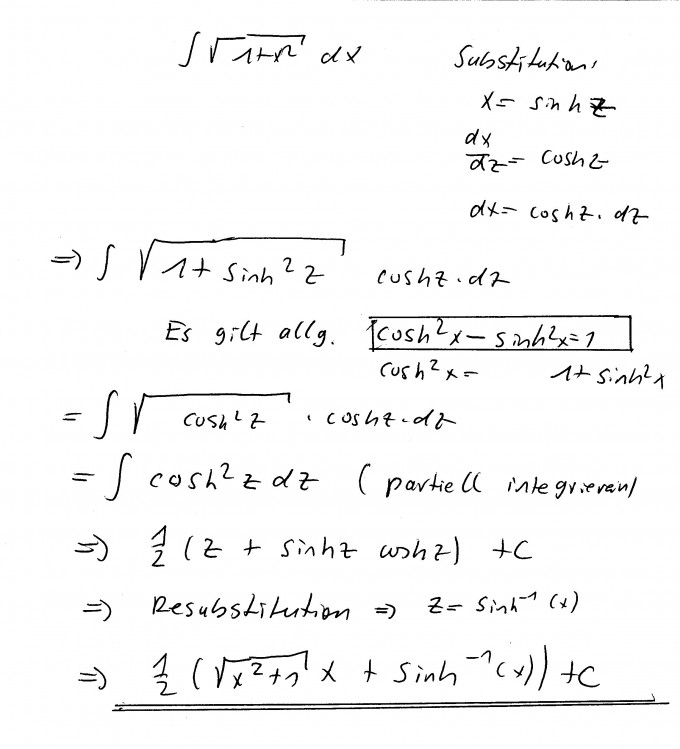 ∫ √(1+x²) dx
Substitution:
x = sinh z
dx/dz = cosh z
dx = cosh z · dz
⇒ ∫ √(1 + sinh² z) cosh z · dz
Es gilt allg. cosh² x − sinh² x = 1
cosh² x = 1 + sinh² x
= ∫ √(cosh² z) · cosh z · dz
= ∫ cosh² z dz ( partiell integrieren)
⇒ 1/2 (z + sinh z cosh z) + C
⇒ Resubstitution ⇒ z = sinh⁻¹ (x)
⇒ 1/2 (√(x²+1) x + sinh⁻¹(x)) + C